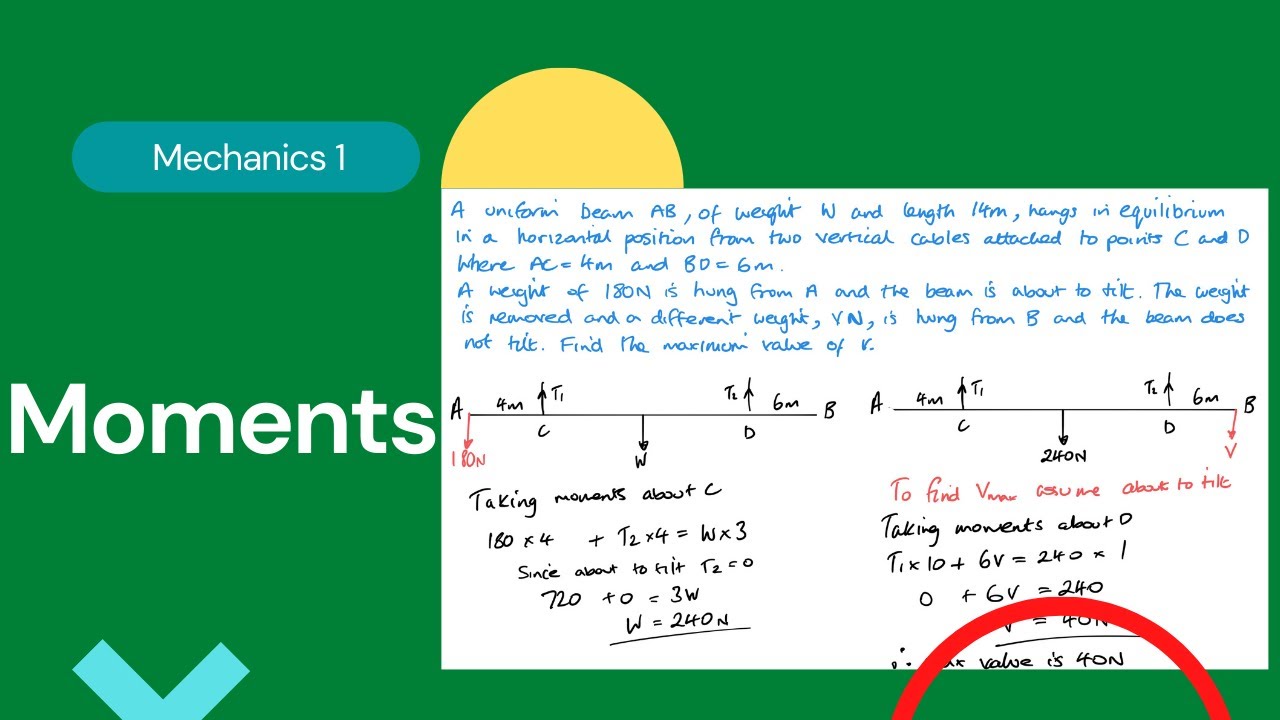 Mechanics 1
Moments
A uniform beam AB, of weight W and length 14m, hangs in equilibrium
in a horizontal position from two vertical cables attached to points C and D
where AC = 4m and BD = 6m.
A weight of 180N is hung from A and the beam is about to tilt. The weight
is removed and a different weight, VN, is hung from B and the beam does
not tilt. Find the maximum value of V.
A 4m T₁ T₂ 6m B
C D
180N W
Taking moments about C
180 × 4 + T₂ × 4 = W × 3
Since about to tilt T₂ = 0
720 + 0 = 3W
W = 240N
A 4m T₁ T₂ 6m B
C D
240N V
To find Vmax assume about to tilt
Taking moments about D
T₁ × 10 + 6V = 240 × 1
0 + 6V = 240
V = 40N
∴ value is 40N